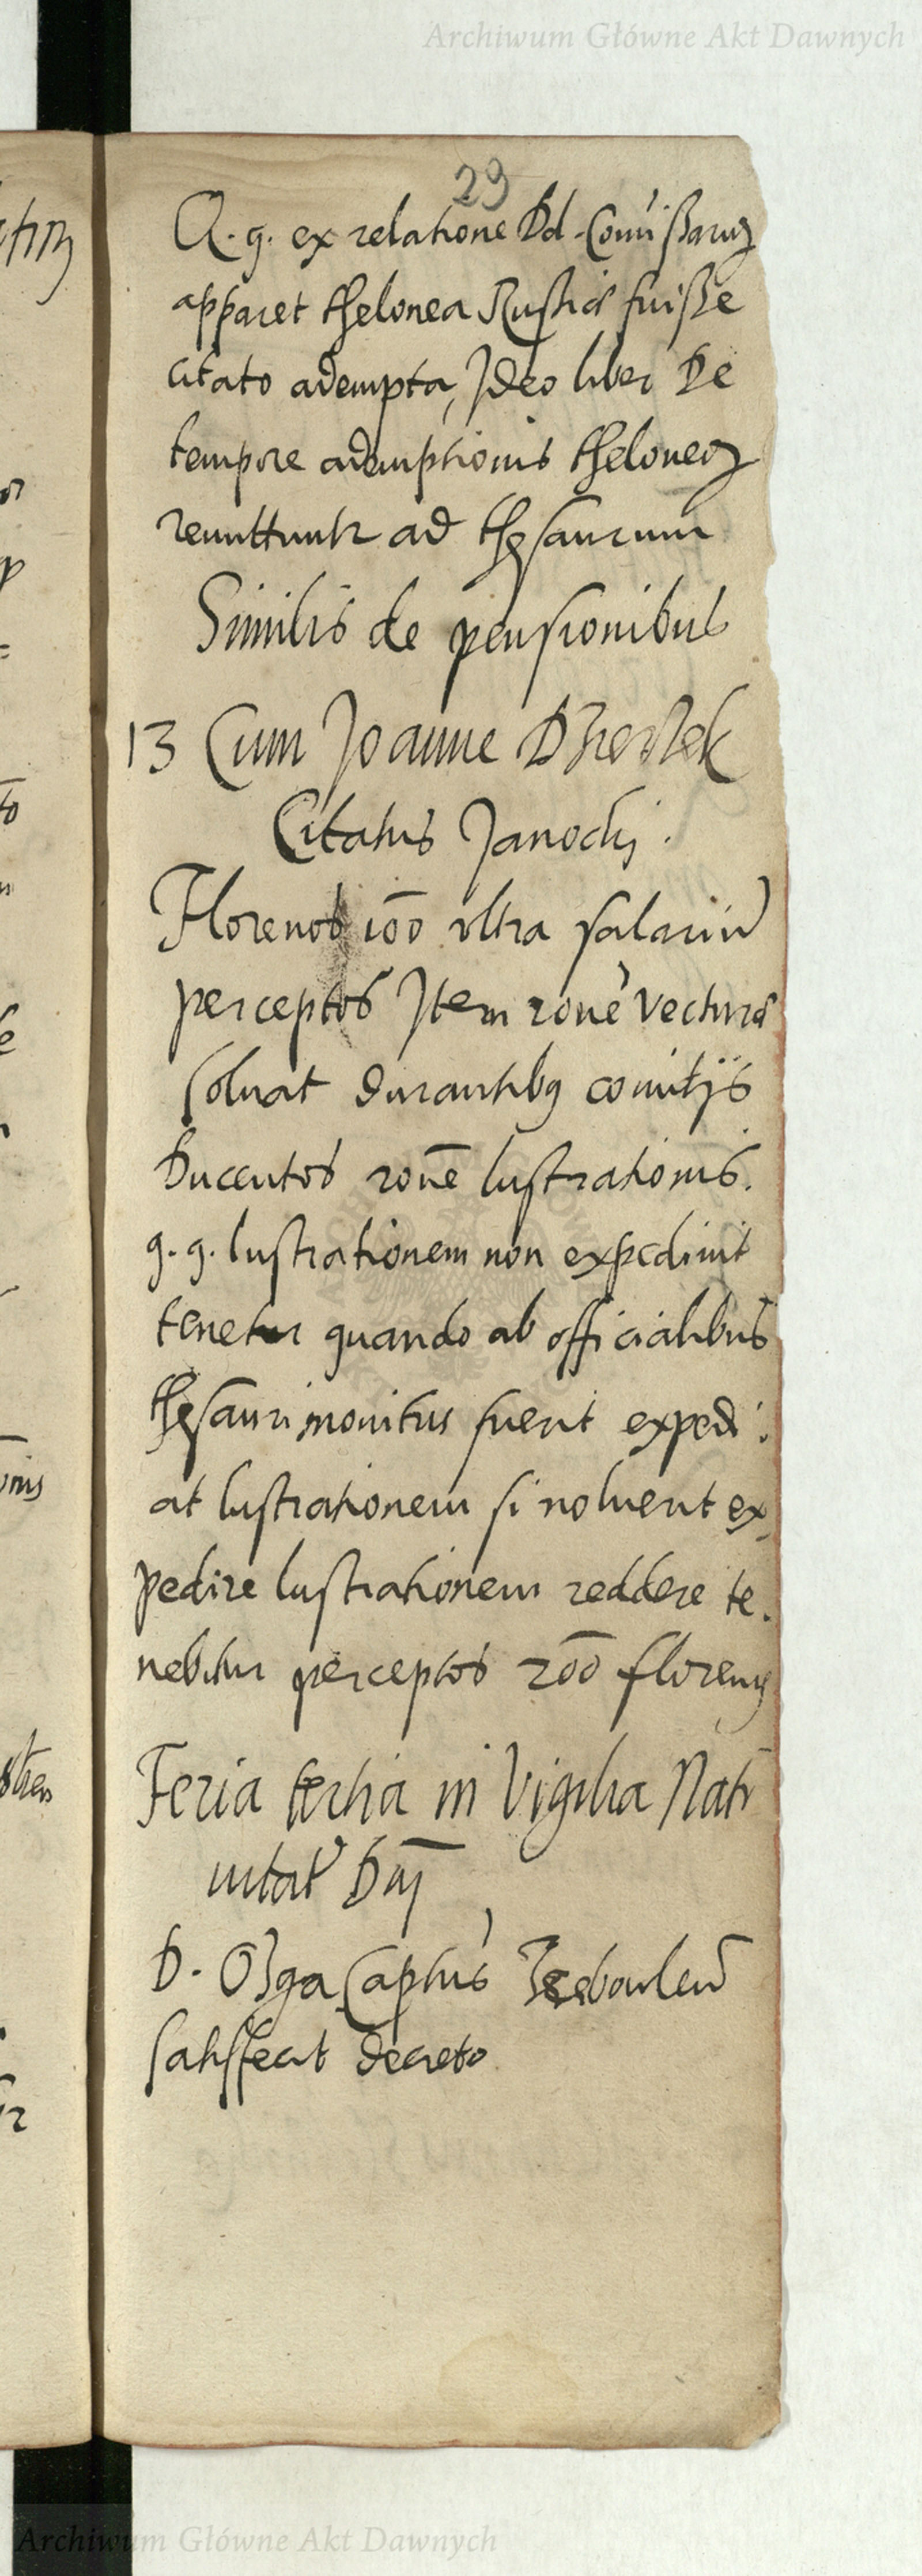 Archiwum Główne Akt Dawnych
29
Q. g. ex relatione Dd. Comissaruz
apparet thelonea Rustica fuisse
citato adempta, Ideo liber De
tempore ademptionis theloneoz
remittuntr ad thesaurum
Similis de pensionibus
13 Cum Joanne
Citatus Janocki.
Florenos 100 ultra salariu
perceptos Item rone Vectura
soluat durantibq comitijs
Ducentos rone lustrationis.
q. q. lustrationem non expediuit
tenetur quando ab officialibus
thesauri monitus fuerit expedi:
at lustrationem si noluerit ex
pedire lustrationem reddere te.
nebitur perceptos 200 florenos
Feria tertia in Vigilia Nati
uitat Dnj
D. Ozga Captus
satisfecit decreto
Archiwum Główne Akt Dawnych